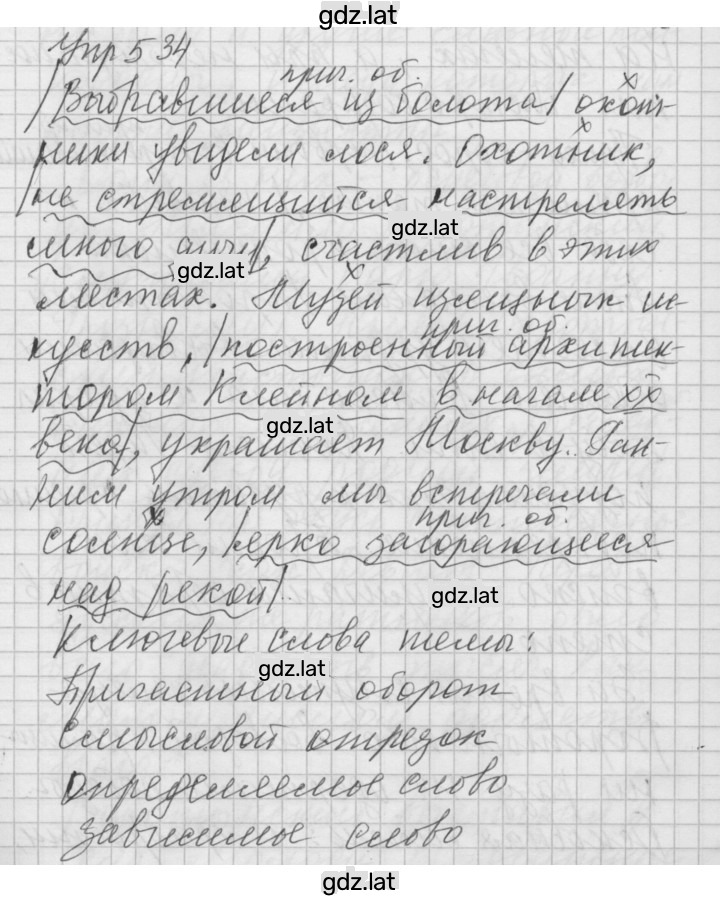 gdz.lat
Упр 534
прич. об. х
|Выбравшиеся из болота| охот-
х
ники увидели лося. Охотник,
|не стремящийся настрелять
gdz.lat
много дичи|, счастлив в этих
gdz.lat
х
местах. Музей изящных ис-
прич. об.
кусств, |построенный архитек-
тором Клейном в начале XX
gdz.lat
века|, украшает Москву. Ран-
ним утром мы встречали
х прич. об.
солнце, |ярко загорающееся
над рекой|.
gdz.lat
Ключевые слова темы:
gdz.lat
Причастный оборот
Смысловой отрезок
определяемое слово
зависимое слово
gdz.lat